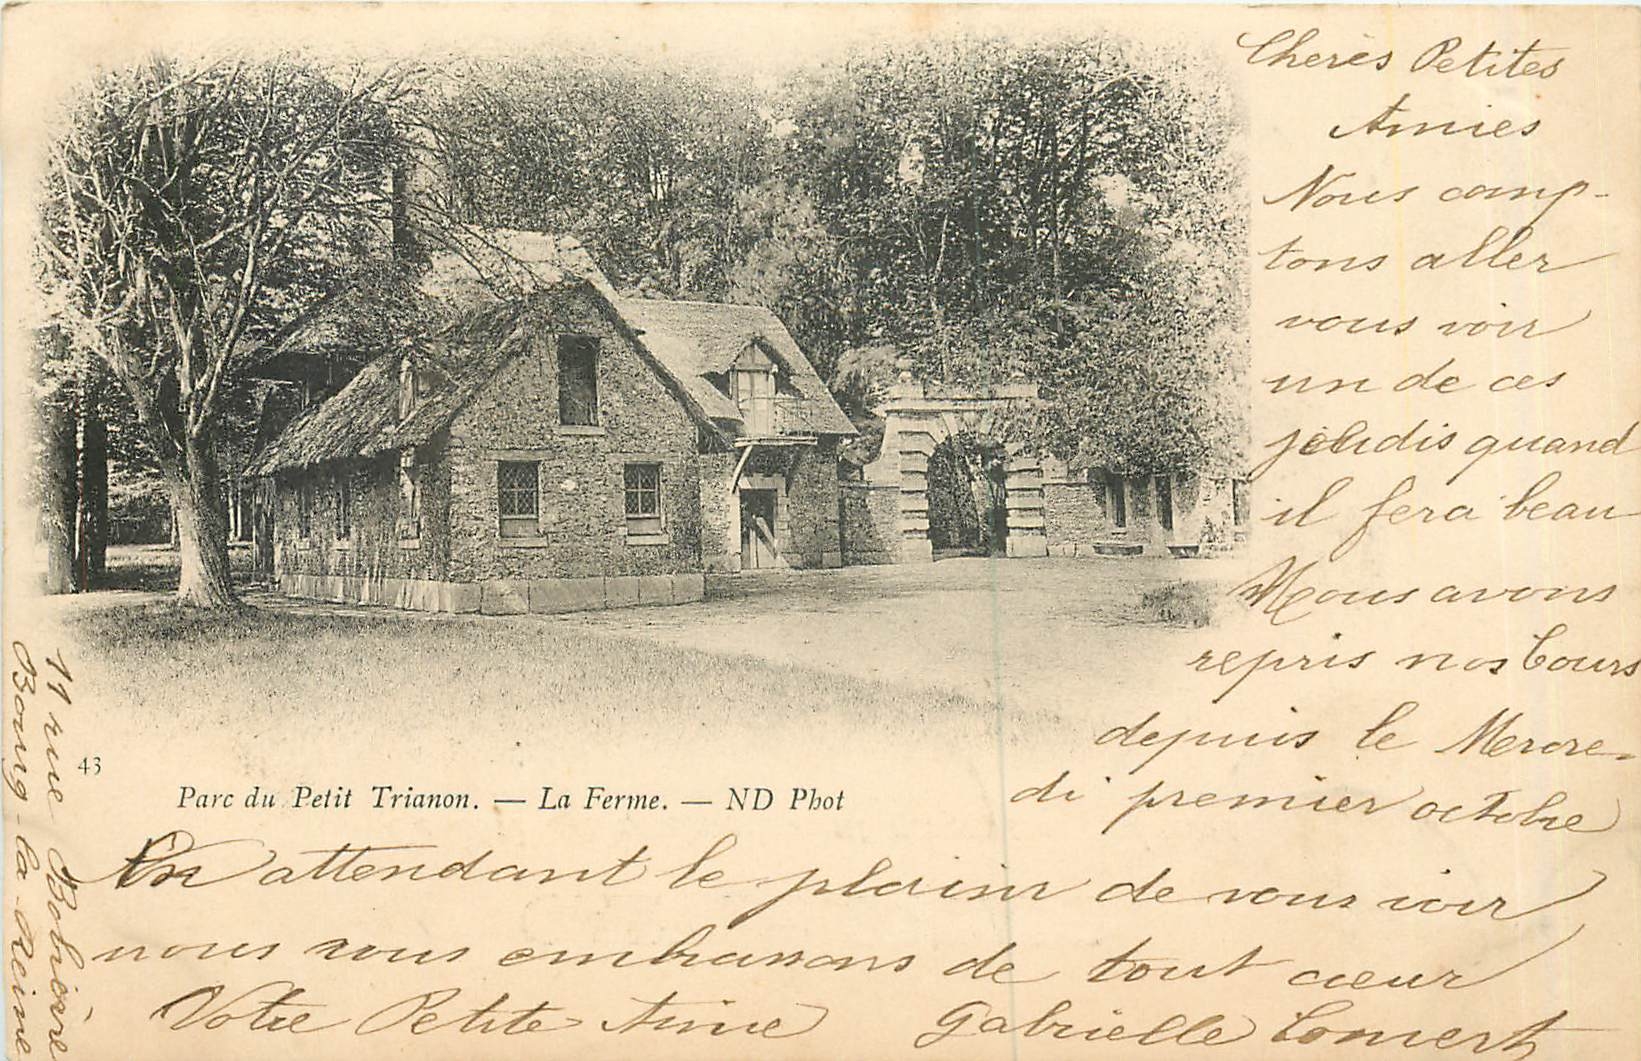 Chères Petites
Amies
Nous comp-
tons aller
vous voir
un de ces
jeudis quand
il fera beau
Nous avons
repris nos Cours
depuis le Mercre-
di premier octobre
En attendant le plaisir de vous voir
nous vous embrassons de tout cœur
Votre Petite Amie Gabrielle
43
Parc du Petit Trianon. — La Ferme. — ND Phot
11 rue
Bourg-la-Reine